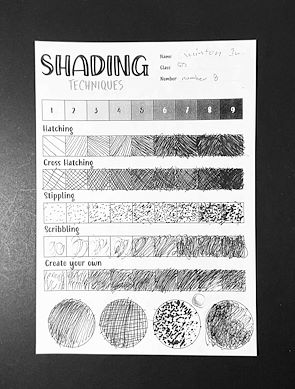 SHADING
TECHNIQUES
Name
Class
Number number 8
1 2 3 4 5 6 7 8 9
Hatching
Cross Hatching
Stippling
Scribbling
Create your own